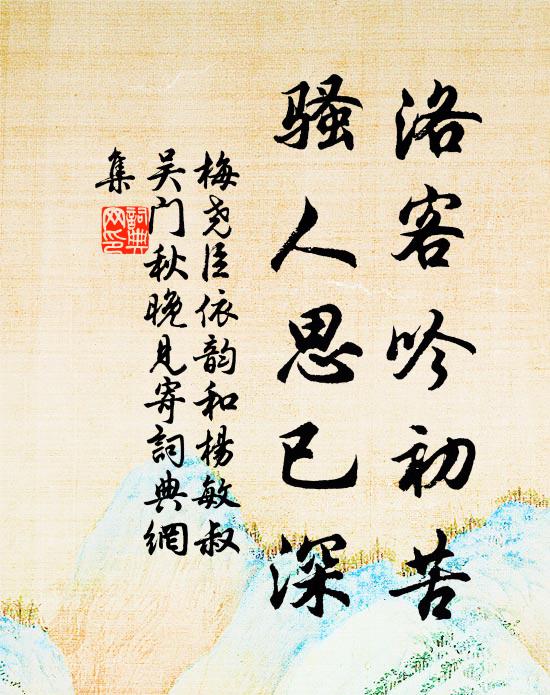 洛客吟初苦
骚人思已深
梅尧臣依韵和杨敏叔
吴门秋晚见寄詞典網
集
詞典网印